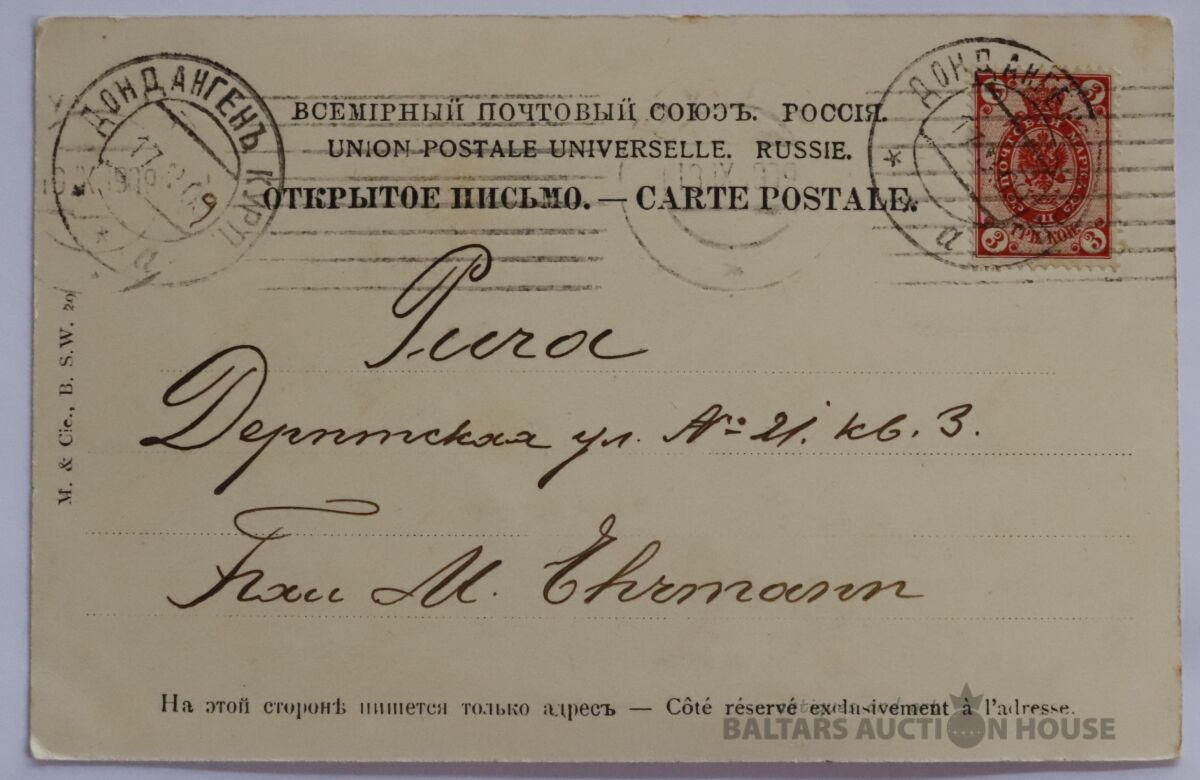 ДОНДАНГЕНЪ КУРЛ.
ВСЕМІРНЫЙ ПОЧТОВЫЙ СОЮЗЪ. РОССІЯ.
UNION POSTALE UNIVERSELLE. RUSSIE.
ОТКРЫТОЕ ПИСЬМО. — CARTE POSTALE.
ДОНДАНГЕ
а
а
9
3 3
ПОЧТОВАЯ МАРКА
ТРИ КОП.
3 3
M. & Cie., B. S.W. 29
Рига
Дерптская ул. № 21. кв. 3.
Frau M. Ehrmann
На этой сторонѣ пишется только адресъ — Côté réservé exclusivement à l'adresse.
BALTARS AUCTION HOUSE